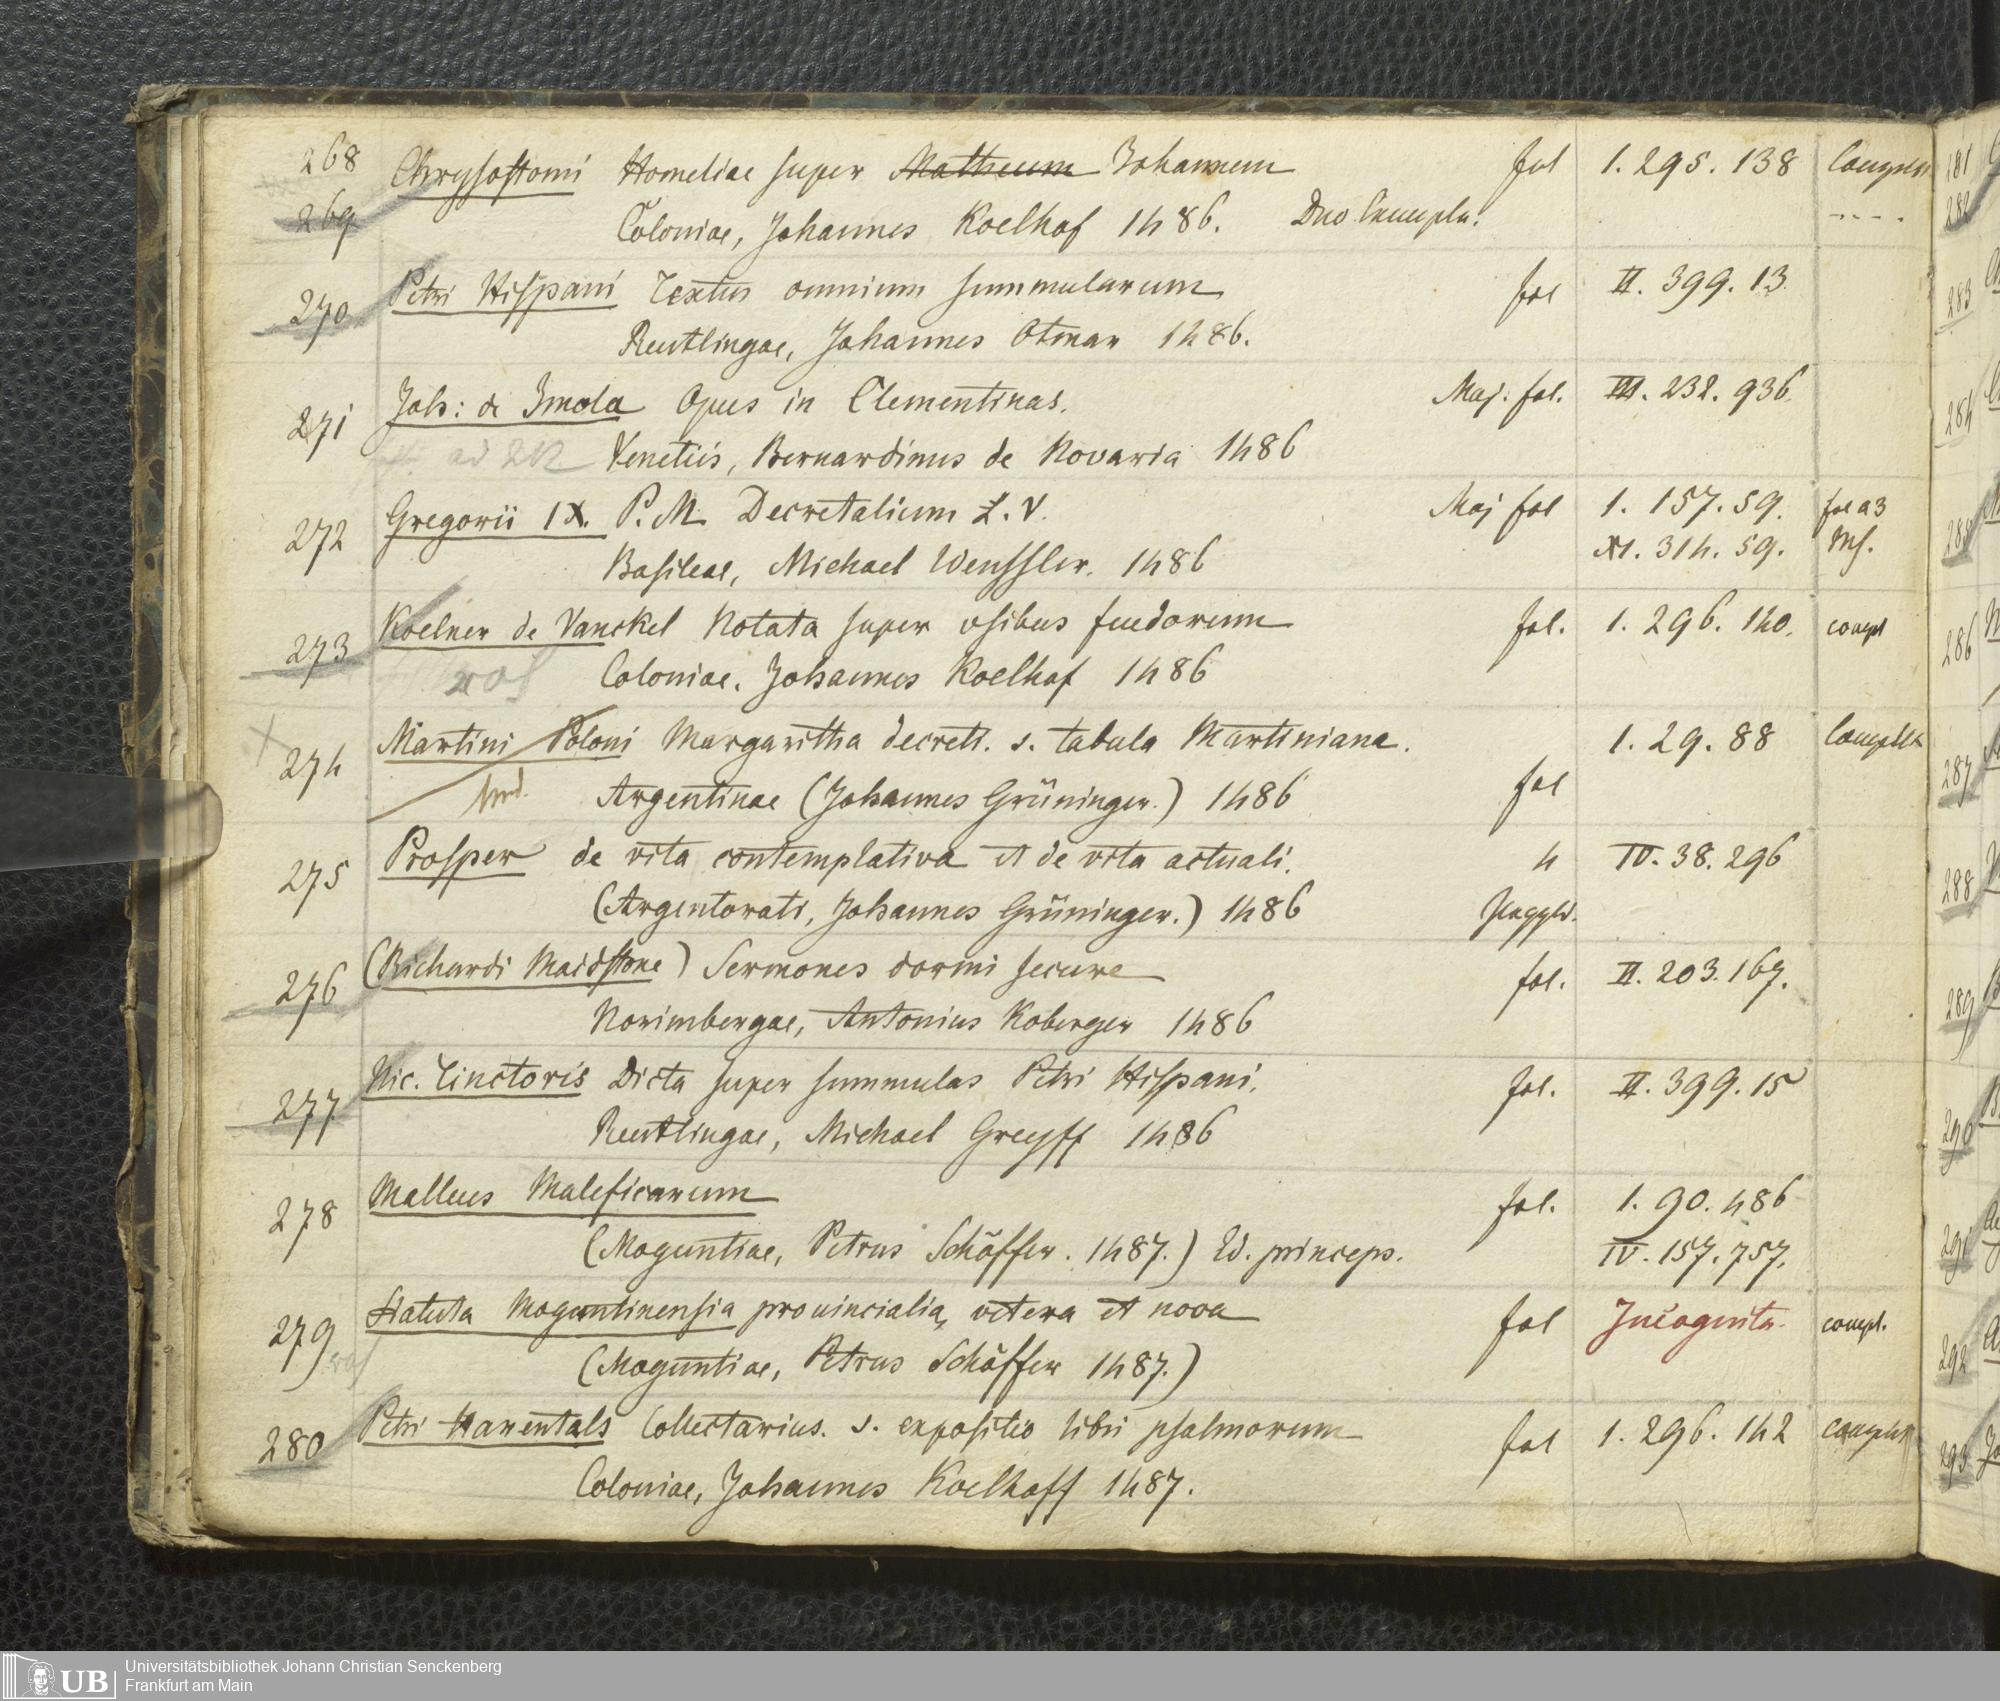 268 Chrysostomi Homeliae super Matheum Johannem fol 1. 295. 138
269 Coloniae, Johannes Koelhof 1486. Duo Exempla.
270 Petri Hispani Textus omnium summularum fol II. 399. 13.
Reutlingae, Johannes Otmar 1486.
271 Joh: de Imola Opus in Clementinas. Maj. fol. III. 232. 936.
Venetiis, Bernardinus de Novaria 1486
272 Gregorii IX. P. M. Decretalium L. V. Maj fol 1. 157. 59.
Basileae, Michael Wenssler. 1486 XI. 314. 59.
273 Koelner de Vanckel Notata super usibus feudorum fol. 1. 296. 140. compl
Coloniae. Johannes Koelhof 1486
274 Martini Poloni Margaritha decreti. s. tabula Martiniana. 1. 29. 88
Argentinae (Johannes Grüninger.) 1486 fol
275 Prosper de vita contemplativa et de vita actuali. 4 IV. 38. 296
(Argentorati, Johannes Grüninger.) 1486
276 (Richardi Maidstone) Sermones dormi secure fol. II. 203. 167.
Norimbergae, Antonius Koberger 1486
277 Nic. Tinctoris Dicta super summulas Petri Hispani. fol. II. 399. 15
Reutlingae, Michael Greyff 1486
278 Malleus Maleficarum fol. 1. 90. 486
(Moguntiae, Petrus Schöffer. 1487.) Ed. princeps. IV. 157. 757.
279 Statuta Moguntinensia prouincialia, vetera et nova fol Incognita. compl.
(Moguntiae, Petrus Schöffer 1487.)
280 Petri Harentals Collectarius. s. expositio libri psalmorum fol 1. 296. 142
Coloniae, Johannes Koelhoff 1487.
UB
Universitätsbibliothek Johann Christian Senckenberg
Frankfurt am Main